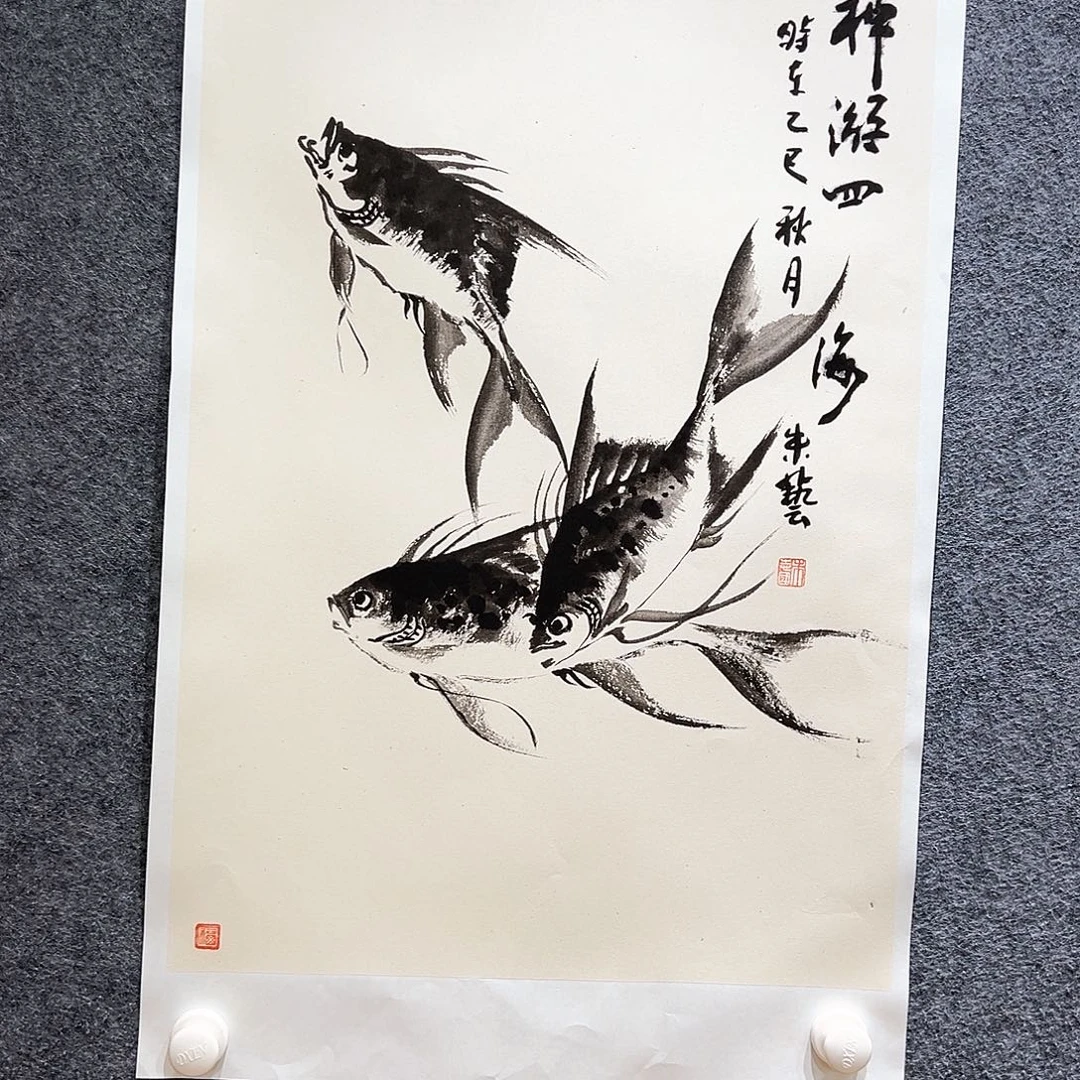 神游四海
時在乙巳秋月
朱藝